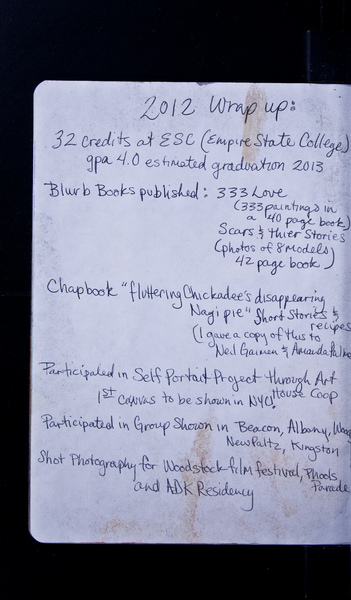 2012 Wrap up:
32 credits at ESC (Empire State College)
gpa 4.0 estimated graduation 2013
Blurb Books published: 333 Love
(333 paintings in
a 40 page book)
Scars & thier Stories
(photos of 8 models)
42 page book)
Chapbook "fluttering Chickadee's disappearing
Nagi pie" Short Stories &
recipes
(I gave a copy of this to
Neil Gaiman & Amanda Palmer
Participated in Self Portait Project through Art
House Coop
1st canvas to be shown in NYC!
Participated in Group Shown in Beacon, Albany,
New Paltz, Kingston
Shot Photography for Woodstock film festival, Phools
Parade
and ADK Residency